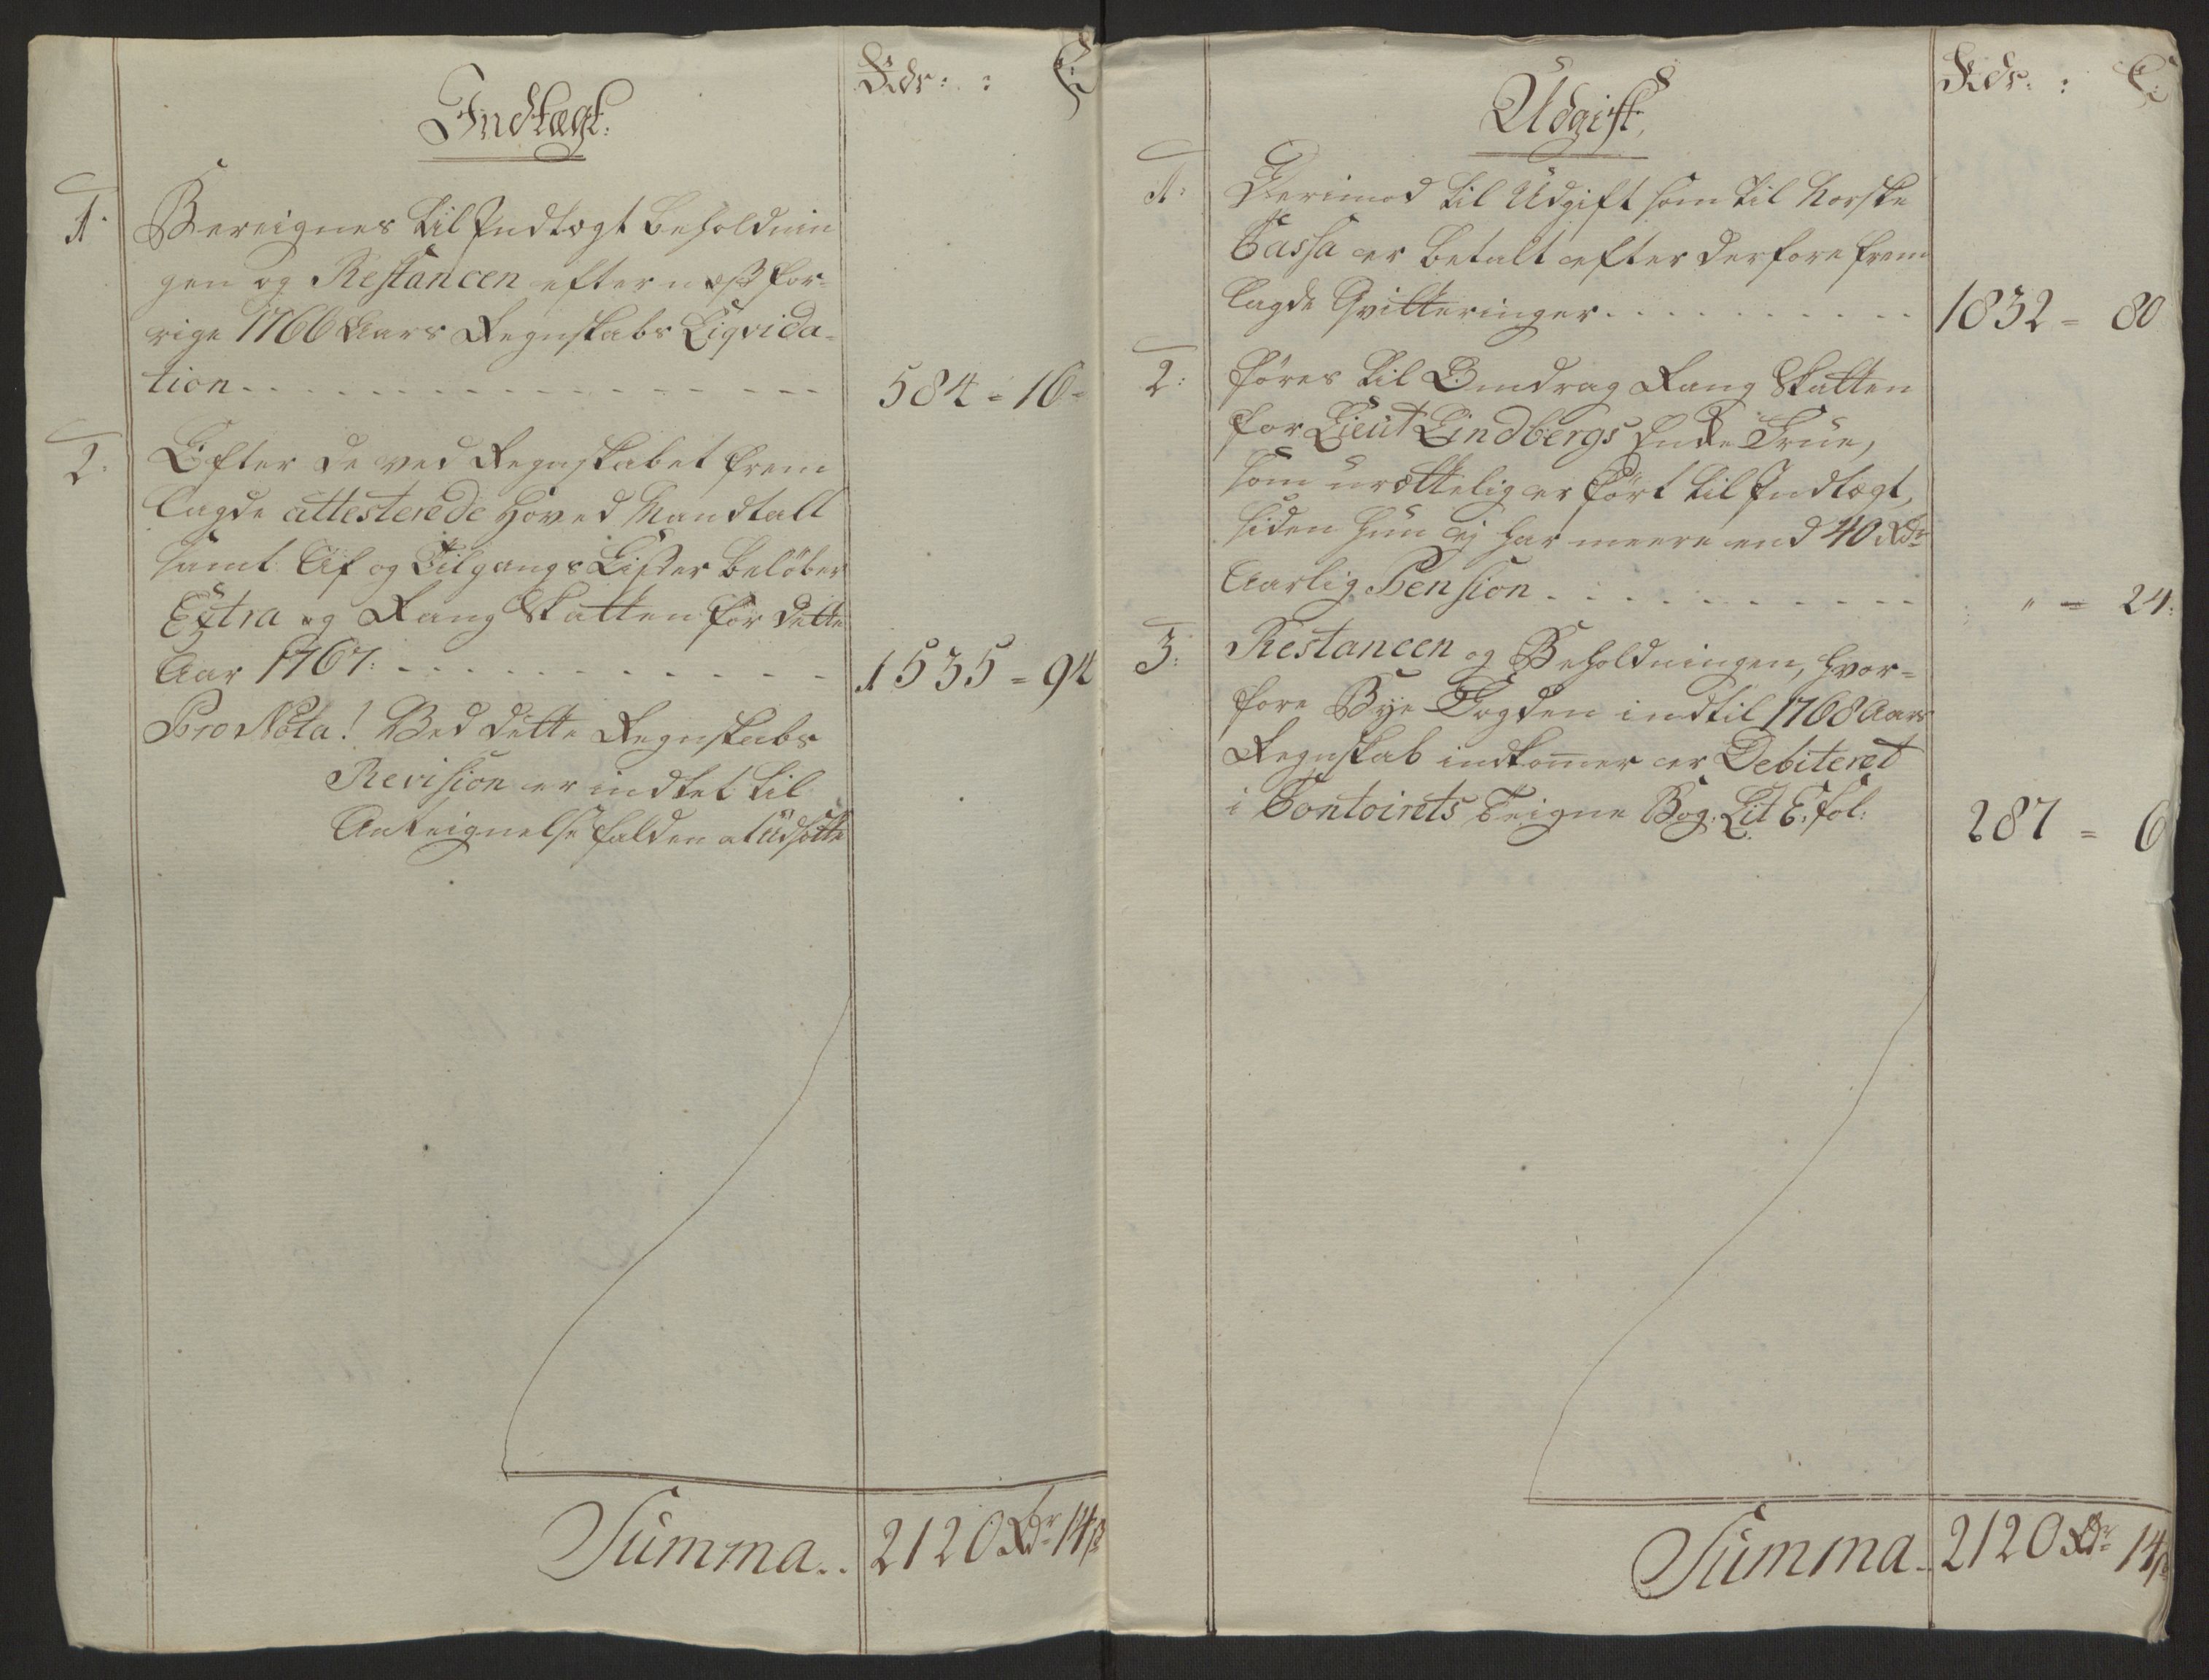 Rdr: : ß:
Indtægt:
1: Bereignes til Indtægt beholdnin
gen og Restancen efter næst for-
rige 1766 Aars Regnskabs Liqvida-
tion - - - 584 = 16 =
2: Efter de ved Regnskabet frem
lagde attesterede Hoved Mandtall
samt Af og Tilgangs Lister beløber
Extra og Rang Skatten for dette
Aar 1767: - - - 1535 = 94
Pro Nota! Ved dette Regnskabs
Revision er indtet til
Anteignelse falden at Udsætte
Summa . . 2120 Rdr 14 ß
Rdr: : ß:
Udgift,
1: Derimod til Udgift som til Norske
Cassa er betalt efter derfore frem
lagde Qvitteringer . . . 1832 = 80
2: Føres til Omdrag Rang Skatten
for Lieut Lindbergs Enke Frue,
som urættelig er ført til Indtægt,
siden hun ej har meere end 40 Rdr
Aarlig Pension . . . " = 24:
3: Restancen og Beholdningen, hvor-
fore Bye Fogden indtil 1768 Aars
Regnskab indkommer er Debiteret
i Contoirets Teigne Bog. Lit E. fol: 287 = 6
Summa . 2120 Rdr 14 ß